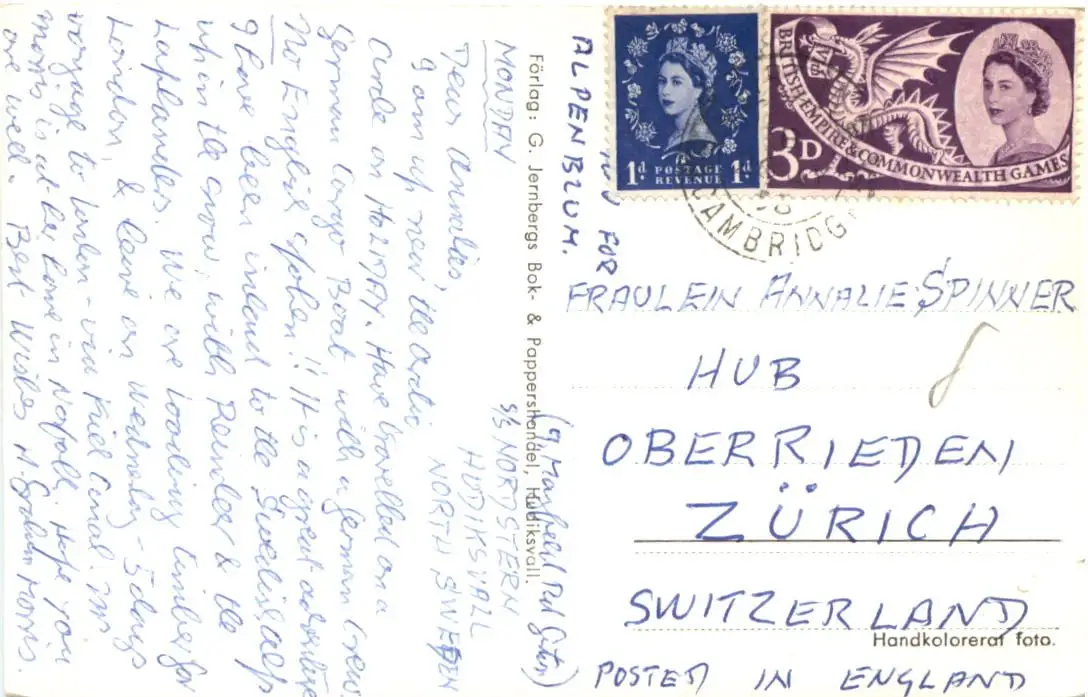 MONDAY
(9 Mayfield Rd Gxton)
S/S NORDSTERN
HUDIKSVALL
NORTH SWEDEN
Dear Annalies,
I am up near the Artic
Circle on HOLIDAY. Have travelled on a
German Cargo Boat with a German Crew
No English spoken!! It is a great adventure
I have been inland to the Swedish alps
up in the snow, with Reindeer & the
Laplanders. We are loading timber for
London, & leave on Wednesday – 5 days
voyage to London – via Kiel Canal. Mrs
Morris is at her home in Norfolk. Hope you
are well. Best Wishes H. Graham Morris.
Förlag: G. Jernbergs Bok- & Pappershandel, Hudiksvall.
FOR
ALPENBLUM.
1d POSTAGE REVENUE 1d
3D
BRITISH EMPIRE & COMMONWEALTH GAMES
CAMBRIDG
FRAULEIN ANNALIE·SPINNER
HUB
OBERRIEDEN
ZÜRICH
SWITZERLAND
Handkolorerat foto.
POSTED IN ENGLAND